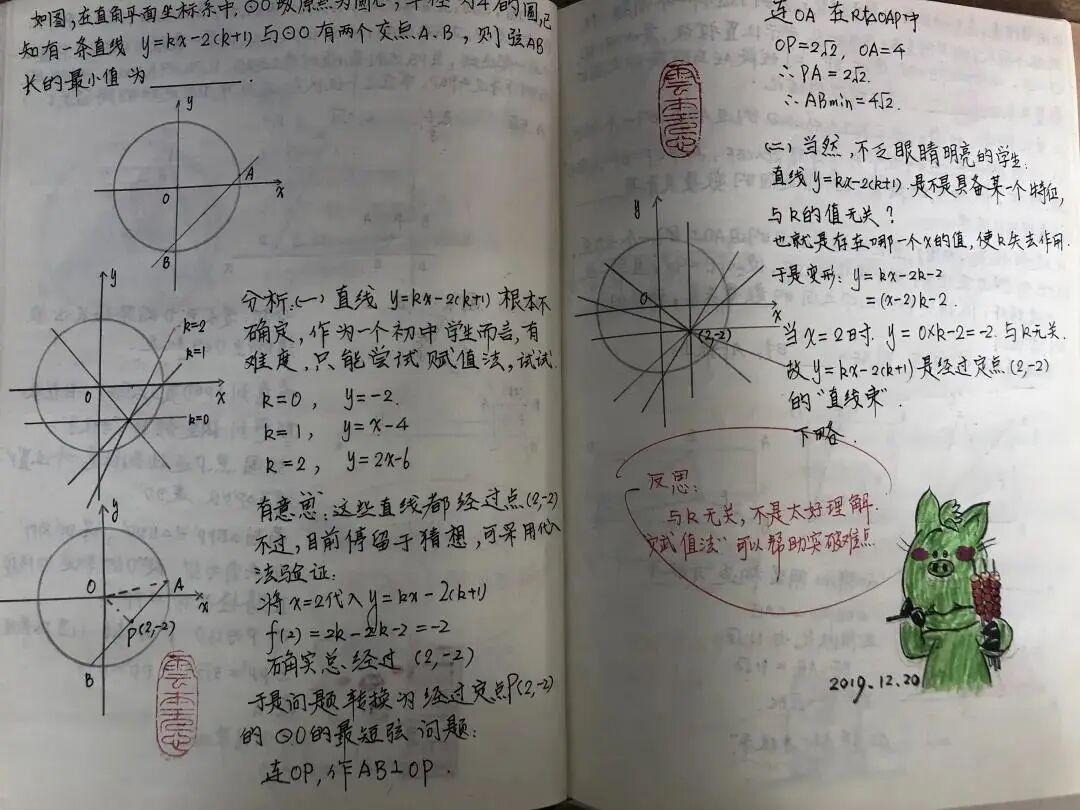 如图,在直角平面坐标系中,⊙O以原点为圆心,半径为4的圆,已
知有一条直线 y=kx-2(k+1)与⊙O有两个交点A.B,则弦AB
长的最小值为________.
y
A
O
x
B
y
k=2
k=1
O
x
k=0
分析.(一) 直线 y=kx-2(k+1) 根本不
确定,作为一个初中学生而言,有
难度,只能尝试赋值法,试试.
k=0, y=-2.
k=1, y=x-4
k=2, y=2x-6
有意思:这些直线都经过点(2,-2)
不过,目前停留于猜想,可采用代入
法验证:
将x=2代入y=kx-2(k+1)
f(2)=2k-2k-2=-2
确实总经过 (2,-2)
于是问题转换为经过定点P(2,-2)
的⊙O的最短弦问题:
连OP,作AB⊥OP.
y
O
A
x
P(2,-2)
B
连OA 在Rt△OAP中
OP=2√2, OA=4
∴PA=2√2.
∴ABmin=4√2.
(二) 当然,不乏眼睛明亮的学生.
直线y=kx-2(k+1).是不是具备某一个特征,
与k的值无关?
也就是存在哪一个x的值,使k失去作用.
于是变形: y=kx-2k-2
=(x-2)k-2.
当x=2时. y=0×k-2=-2.与k无关.
故y=kx-2(k+1)是经过定点(2,-2)
的"直线束".
下略.
y
O
x
(2,-2)
反思:
与k无关,不是太好理解.
"赋值法"可以帮助突破难点
2019.12.20